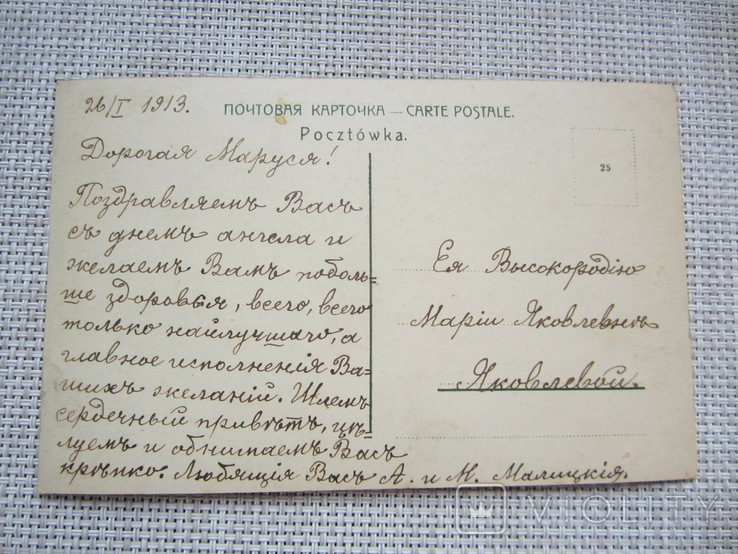 26/I 1913.
ПОЧТОВАЯ КАРТОЧКА — CARTE POSTALE.
Pocztówka.
25
Дорогая Маруся!
Поздравляемъ Васъ
съ днемъ ангела и
желаемъ Вамъ поболь=
ше здоровья, всего, всего
только наилучшаго, а
главное исполненія Ва=
шихъ желаній. Шлемъ
сердечный привѣтъ, цѣ=
луемъ и обнимаемъ Васъ
крѣпко. Любящія Васъ А. и М. Малицкія.
Ея Высокородію
Маріи Яковлевнѣ
Яковлевой.
VIOLITY